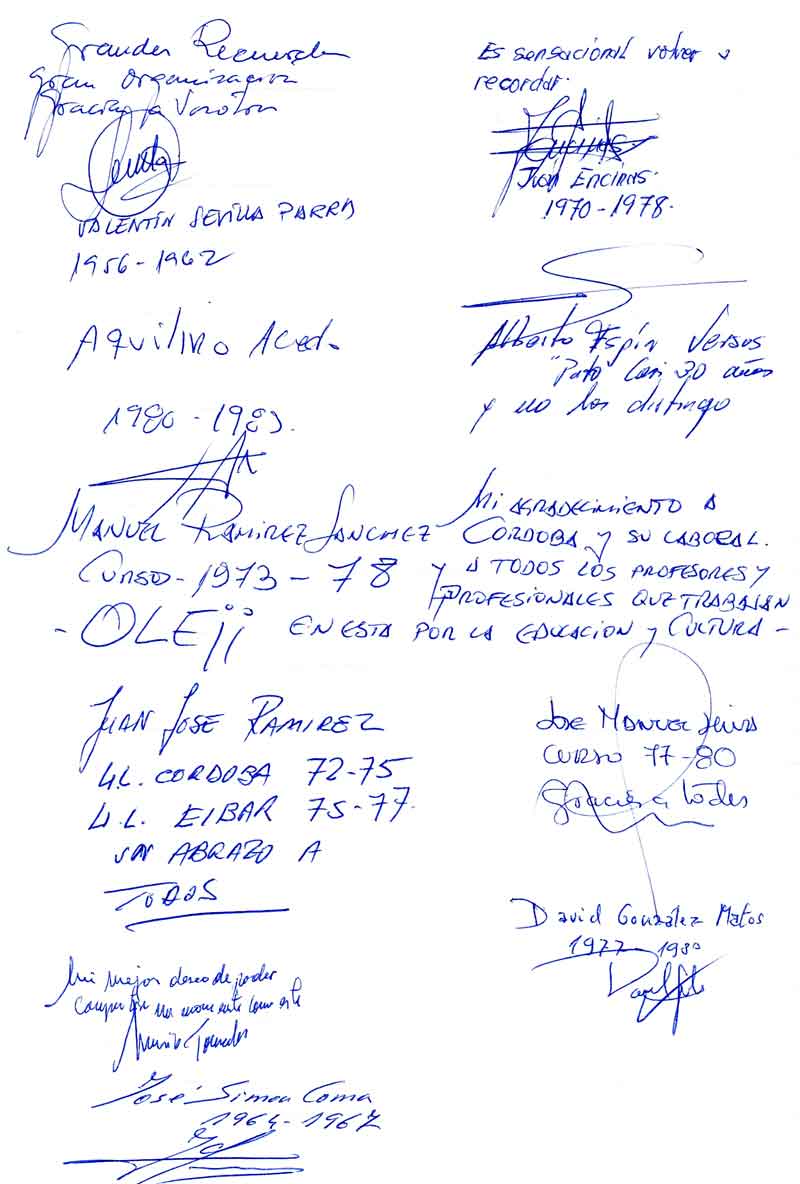 Grandes Recuerdos
Gran Organización
Gracias a
VALENTÍN SEVILLA PARRA
1956-1962
Es sensacional volver a
recordar.
Juan ENCINAS.
1970-1978.
AQUILINO Acedo
1980-1983.
Alberto Espín Versus
"Pato" Casi 30 años
y no los distingo
MANUEL RAMIREZ SANCHEZ
CURSO-1973-78
-OLE¡¡
Mi AGRADECIMIENTO A
CORDOBA y SU LABORAL.
y A TODOS LOS PROFESORES y
PROFESIONALES QUE TRABAJAN
EN ESTA POR LA EDUCACION y CULTURA-
JUAN JOSE RAMIREZ
U.L. CORDOBA 72-75
U.L. EIBAR 75-77.
UN ABRAZO A
TODOS
JOSE MANUEL
CURSO 77-80
Gracias a todos
David González Matos
1977-1980
Mi mejor deseo de poder
compartir un momento como este
José Simon Coma
1964-1967